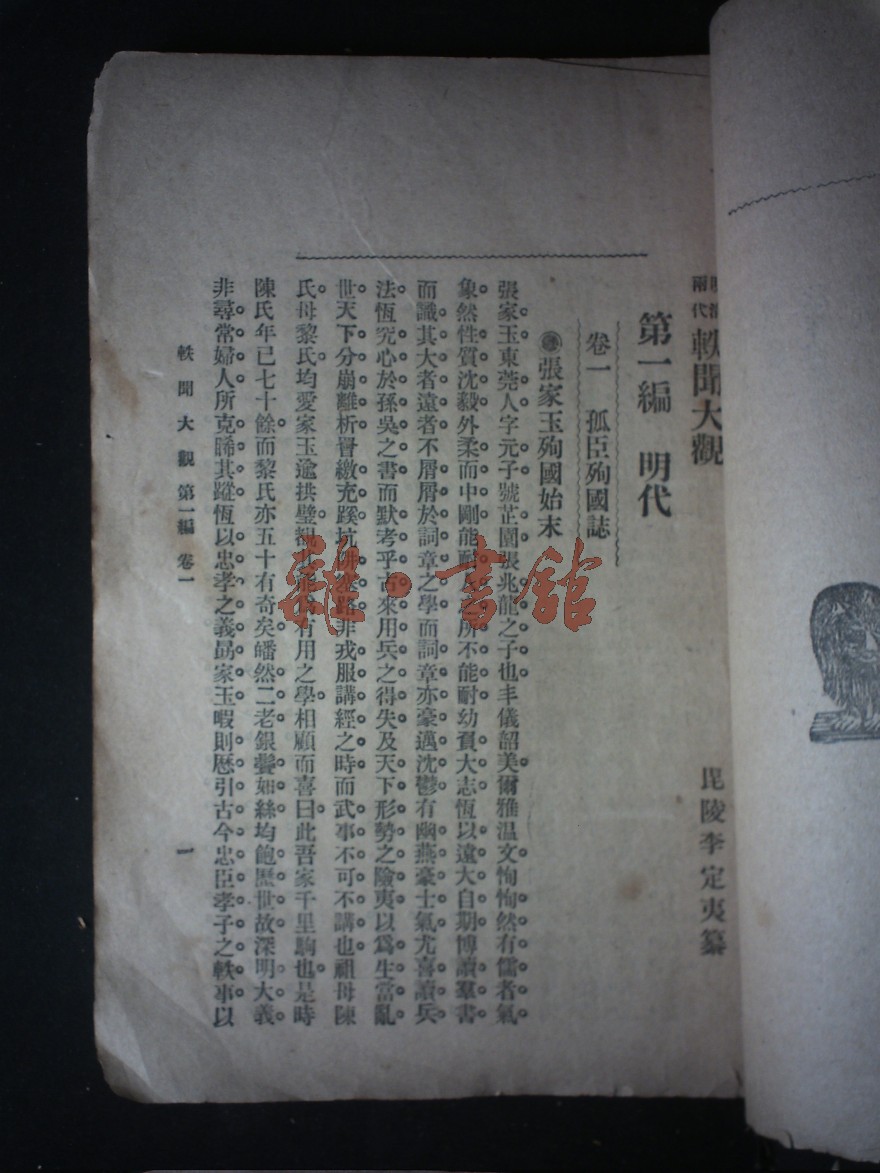 兩代軼聞大觀
毘陵李定夷纂
第一編　明代
卷一　孤臣殉國誌
張家玉殉國始末
張家玉東莞人字元子號芷園張兆龍之子也丰儀韶美爾雅温文恂恂然有儒者氣
象然性質沈毅外柔而中剛能耐人之所不能耐幼負大志恆以遠大自期博讀羣書
而識其大者遠者不屑屑於詞章之學而詞章亦豪邁沈鬱有幽燕豪士氣尤喜讀兵
法恆究心於孫吳之書而默考乎古來用兵之得失及天下形勢之險夷以爲生當亂
世天下分崩離析罾繳充蹊坑穽塞路非戎服講經之時而武事不可不講也祖母陳
氏母黎氏均愛家玉逾拱璧親其能爲有用之學相顧而喜曰此吾家千里駒也是時
陳氏年已七十餘而黎氏亦五十有奇矣皤然二老銀鬢如絲均飽歷世故深明大義
非尋常婦人所克睎其蹤恆以忠孝之義勗家玉暇則歷引古今忠臣孝子之軼事以
軼聞大觀　第一編　卷一
一
雜·書館